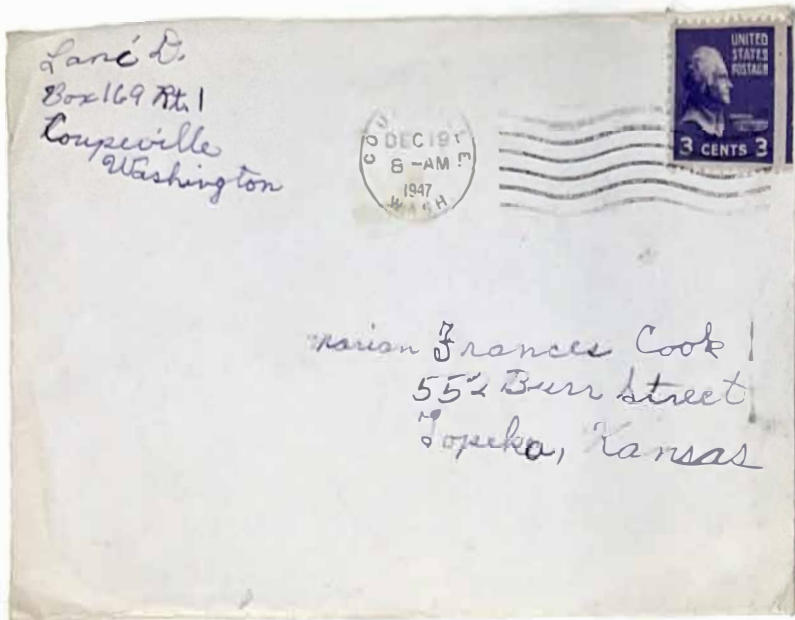 Lané D.
Box 169 Rt. 1
Coupeville
Washington
DEC 19
8 -AM
1947
WASH
UNITED
STATES
POSTAGE
3 CENTS 3
Marian Frances Cook
552 Burr Street
Topeka, Kansas